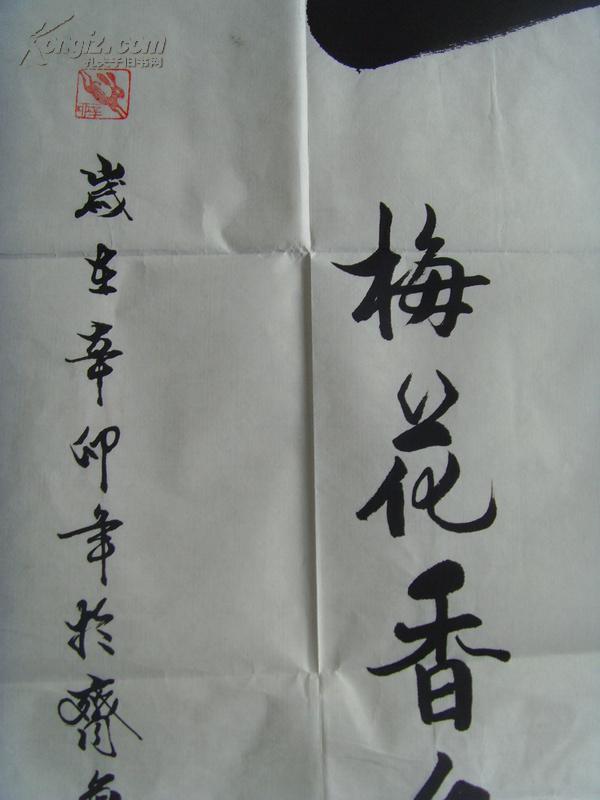 Kongfz.com
孔夫子旧书网
梅花香
歲在辛卯年於齊
辛卯